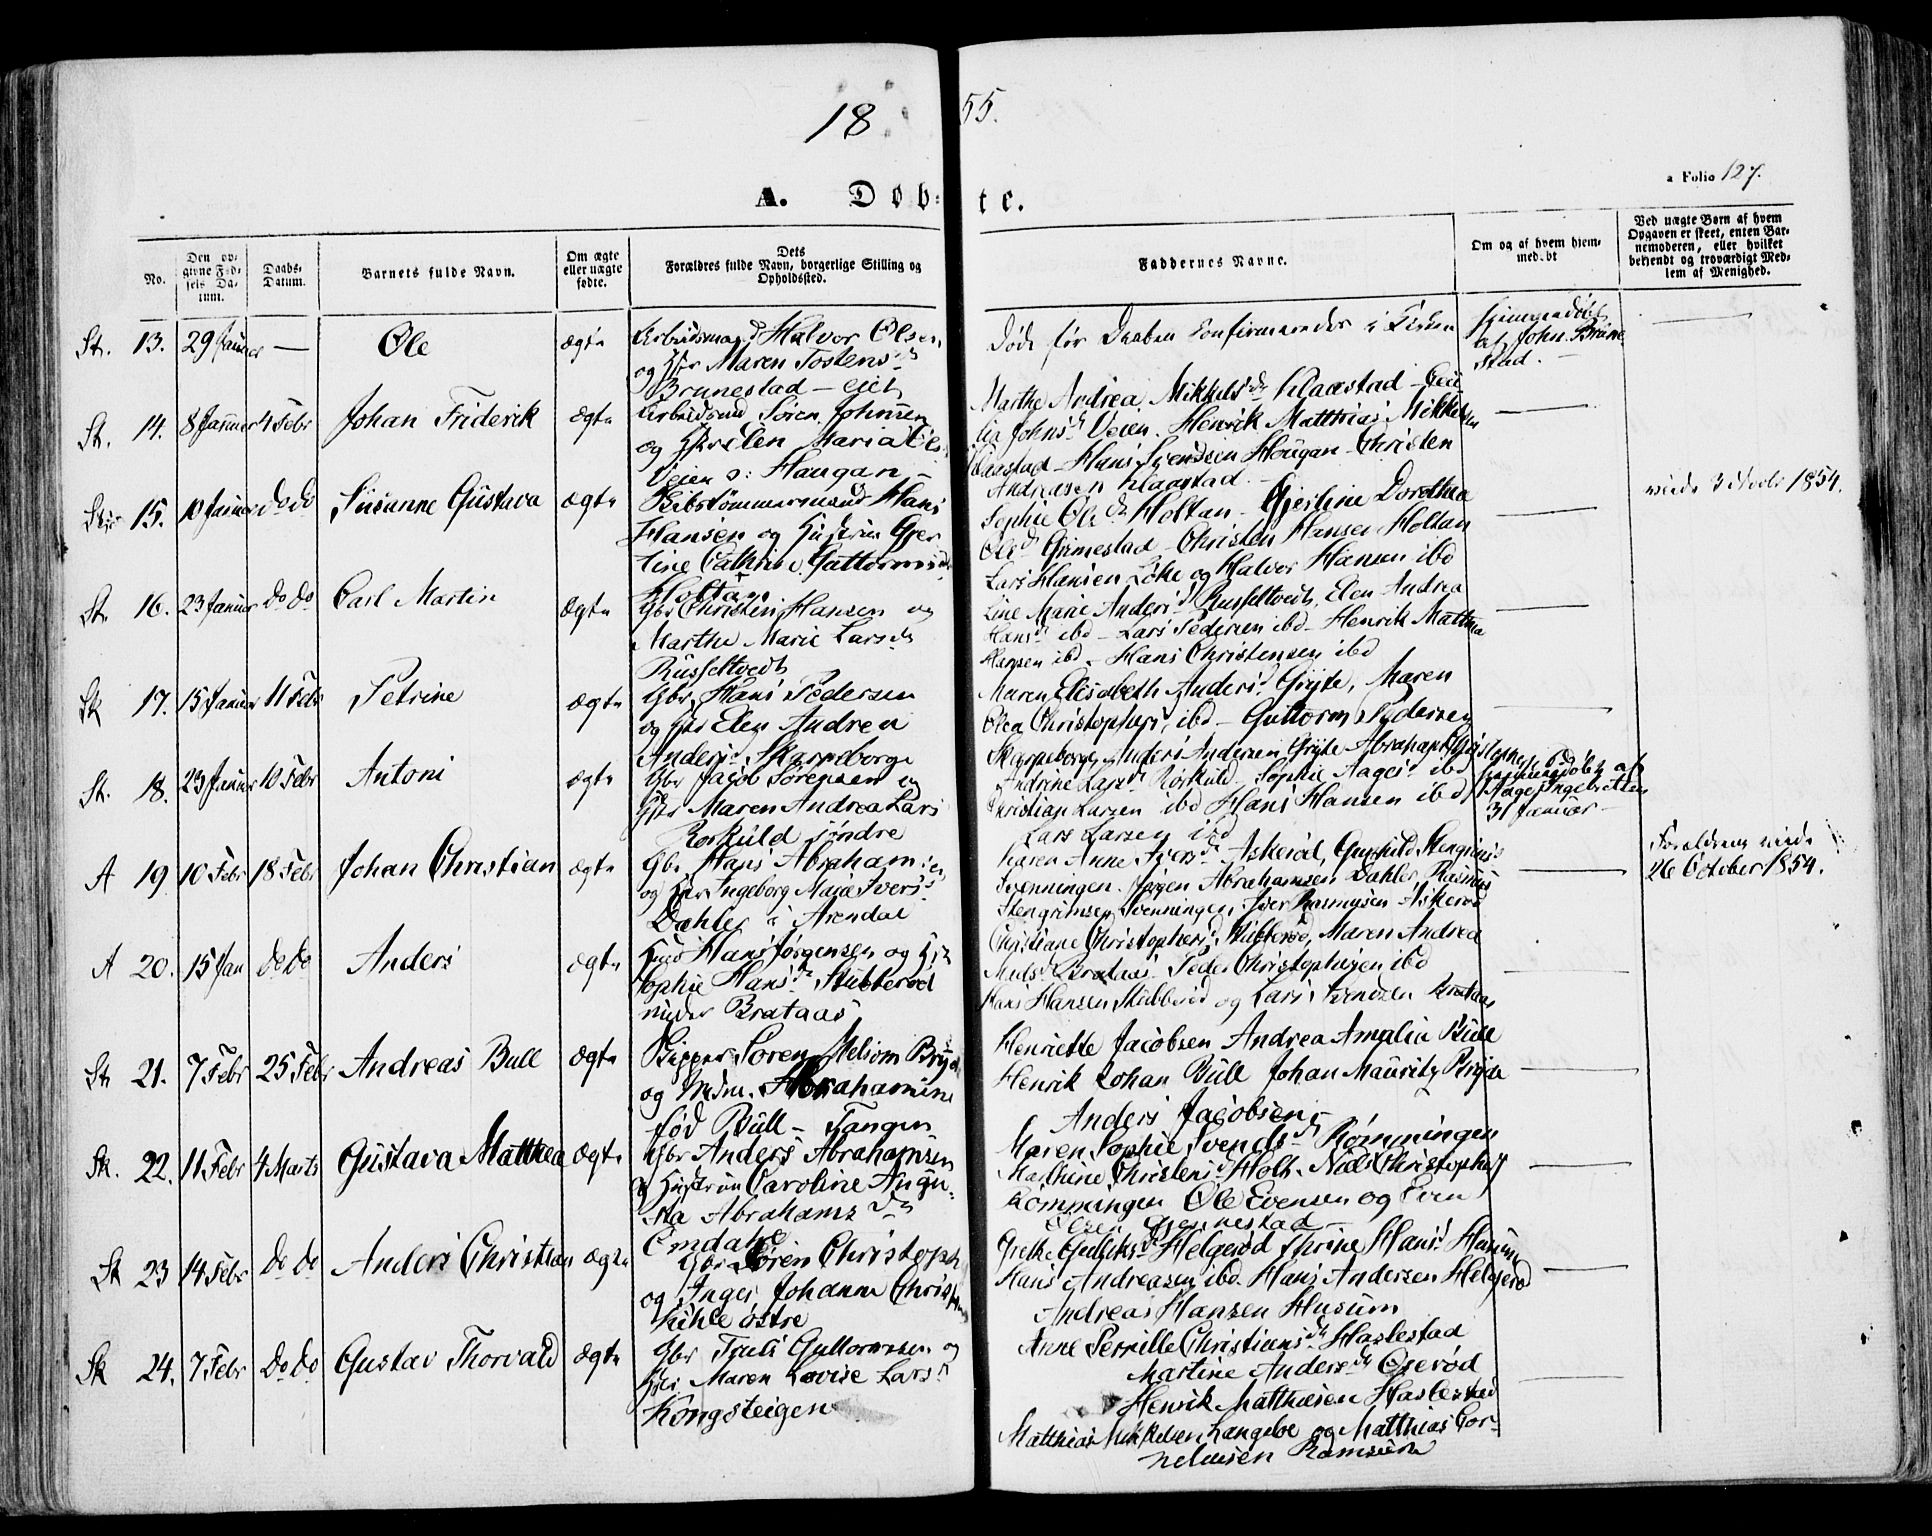 1855.
a Folio 127.
A. Døb-te.
No.
Den opgivne Fødsels Datum.
Daabs-Datum.
Barnets fulde Navn.
Om ægte eller uægte fødte.
Dets Forældres fulde Navn, borgerlige Stilling og Opholdssted.
Faddernes Navne.
Om og af hvem hjemmedøbt
Ved uægte Børn af hvem Opgaven er skeet, enten Barnemoderen, eller hvilket bekjendt og troværdigt Medlem af Menighed.
St. 13. 29 Januar — Ole ægte
Arbeidsmand Halvor Olsen
og Hstr Maren Tostensd.
Brunestad — eiet
Døde før Daaben Confirmeredes i Kirken
Hjemmedøbt
af John Brunestad. —
St. 14. 8 Januar 4 Febr Johan Friderik ægte
Arbeidsmd Søren Johnsen
og Hstr Elen Maria
Veien s: Haugan —
Marthe Andrea Mikkelsd. Klaastad —
lia Johnsd. Veien. Henrik Matthias Mikkelsen
Klaastad — Hans Svendsen Hougan — Christen
Andreasen Klaastad. —
15. 10 Januar do do Susanne Gustava ægte
Bibstømmermand Hans
Hansen og Hustrue Gjer
tine Cathrine Guttormsd.
Holtan
Sophie Olsd. Holtan — Gjertine Dorothea
Olsd. Grimestad — Christen Hansen Holtan
Lars Hansen Løke og Halvor Hansen ibd
1854.
St. 16. 23 Januar do do Carl Martin ægte
Gbr Christen Hansen og
Marthe Marie Larsd.
Russeltvedt
Line Marie Andersd. Russeltvedt, Elen Andrea
Hansd. ibd — Lars Pedersen ibd — Henrik Mathia
Hansen ibd — Hans Christensen ibd
Sk 17. 15 Januar 11 Febr Petrine ægte
Gbr. Hans Pedersen
og Hstr Elen Andrea
Andersd. Skarpeborge
Maren Elisabeth Andersd. Gryte, Maren
Olea Christophersd. ibd — Guttorm Pedersen
Skarpeborge, Anders Andersen Gryte Abraham
St. 18. 23 Januar 10 Febr Antoni ægte
Gbr Jacob Sørensen og
Hstr Maren Andrea Lars
Rørkuld søndre
Andrine Larsd. Rørkuld — Sophie Aagesd. ibd
Christian Larsen ibd Hans Hansen ibd
Lars Larsen ibd
hjemmedøbt af
Aage Ingebretsen
31 Januar —
A 19 10 Febr 18 Febr Johan Christian ægte
Gbr Hans Abrahamsen
og Hstr Ingeborg Marie Iversd.
Dahler i Arendal
Karen Anne Iversd. Askerød, Gunhild Stengrimsd.
Svenningen. Jørgen Abrahamsen Dahler, Rasmus
Stengrimsen Svenningen, Iver Rasmusen Askerød
Forældrene viede
26 October 1854.
A 20. 15 Jan do do Anders ægte
Hmd Hans Jørgensen og Hstr
Sophie Hansd. Stubberød
under Brataas
Christiane Christophersd. Stubberød, Maren Andrea
Nielsd. Brataas. Peder Christophersen ibd
Hans Hansen Stubberød og Lars Svendsen Brataas
St 21. 7 Febr 25 Febr Andreas Bull ægte
Skipper Søren Melsom Bryde
og Mdm. Abrahamine
fød Bull — Tangen
Henriette Jacobsen Andrea Amalia Bull
Henrik Johan Bull Johan Mauritz Bryde
Anders Jacobsen
Sk. 22. 11 Febr 4 Marts Gustava Mathea ægte
Gbr Anders Abrahamsen
og Hustrue Caroline Augu-
sta Abrahamsd.
Omdahl
Maren Sophie Svendsd. Rømmingen
Mathine Christensd. Holt. Niels Christophers
Rømmingen Ole Evensen og Even
Olsen Gjennestad
Sk 23 14 Febr do do Anders Christian ægte
Gbr Søren Christoph
og Inger Johanne Christ
Kihle østre
Grethe Gulliksd. Helgerød Thrine Hansd. Husum
Hans Andreasen ibd. Hans Andersen Helgerød
Andreas Hansen Husum
Sk 24. 7 Febr do do Gustav Thorvald ægte
Gbr Truls Guttormsen og
Hstr Maren Lovise Larsd.
Kongsteigen
Anne Pernille Christiansd. Haslestad
Martine Andersd. Oserød
Henrik Matthiesen Haslestad
Matthias Mikkelsen Langebe og Matthias Cor-
neliusen Ramsum